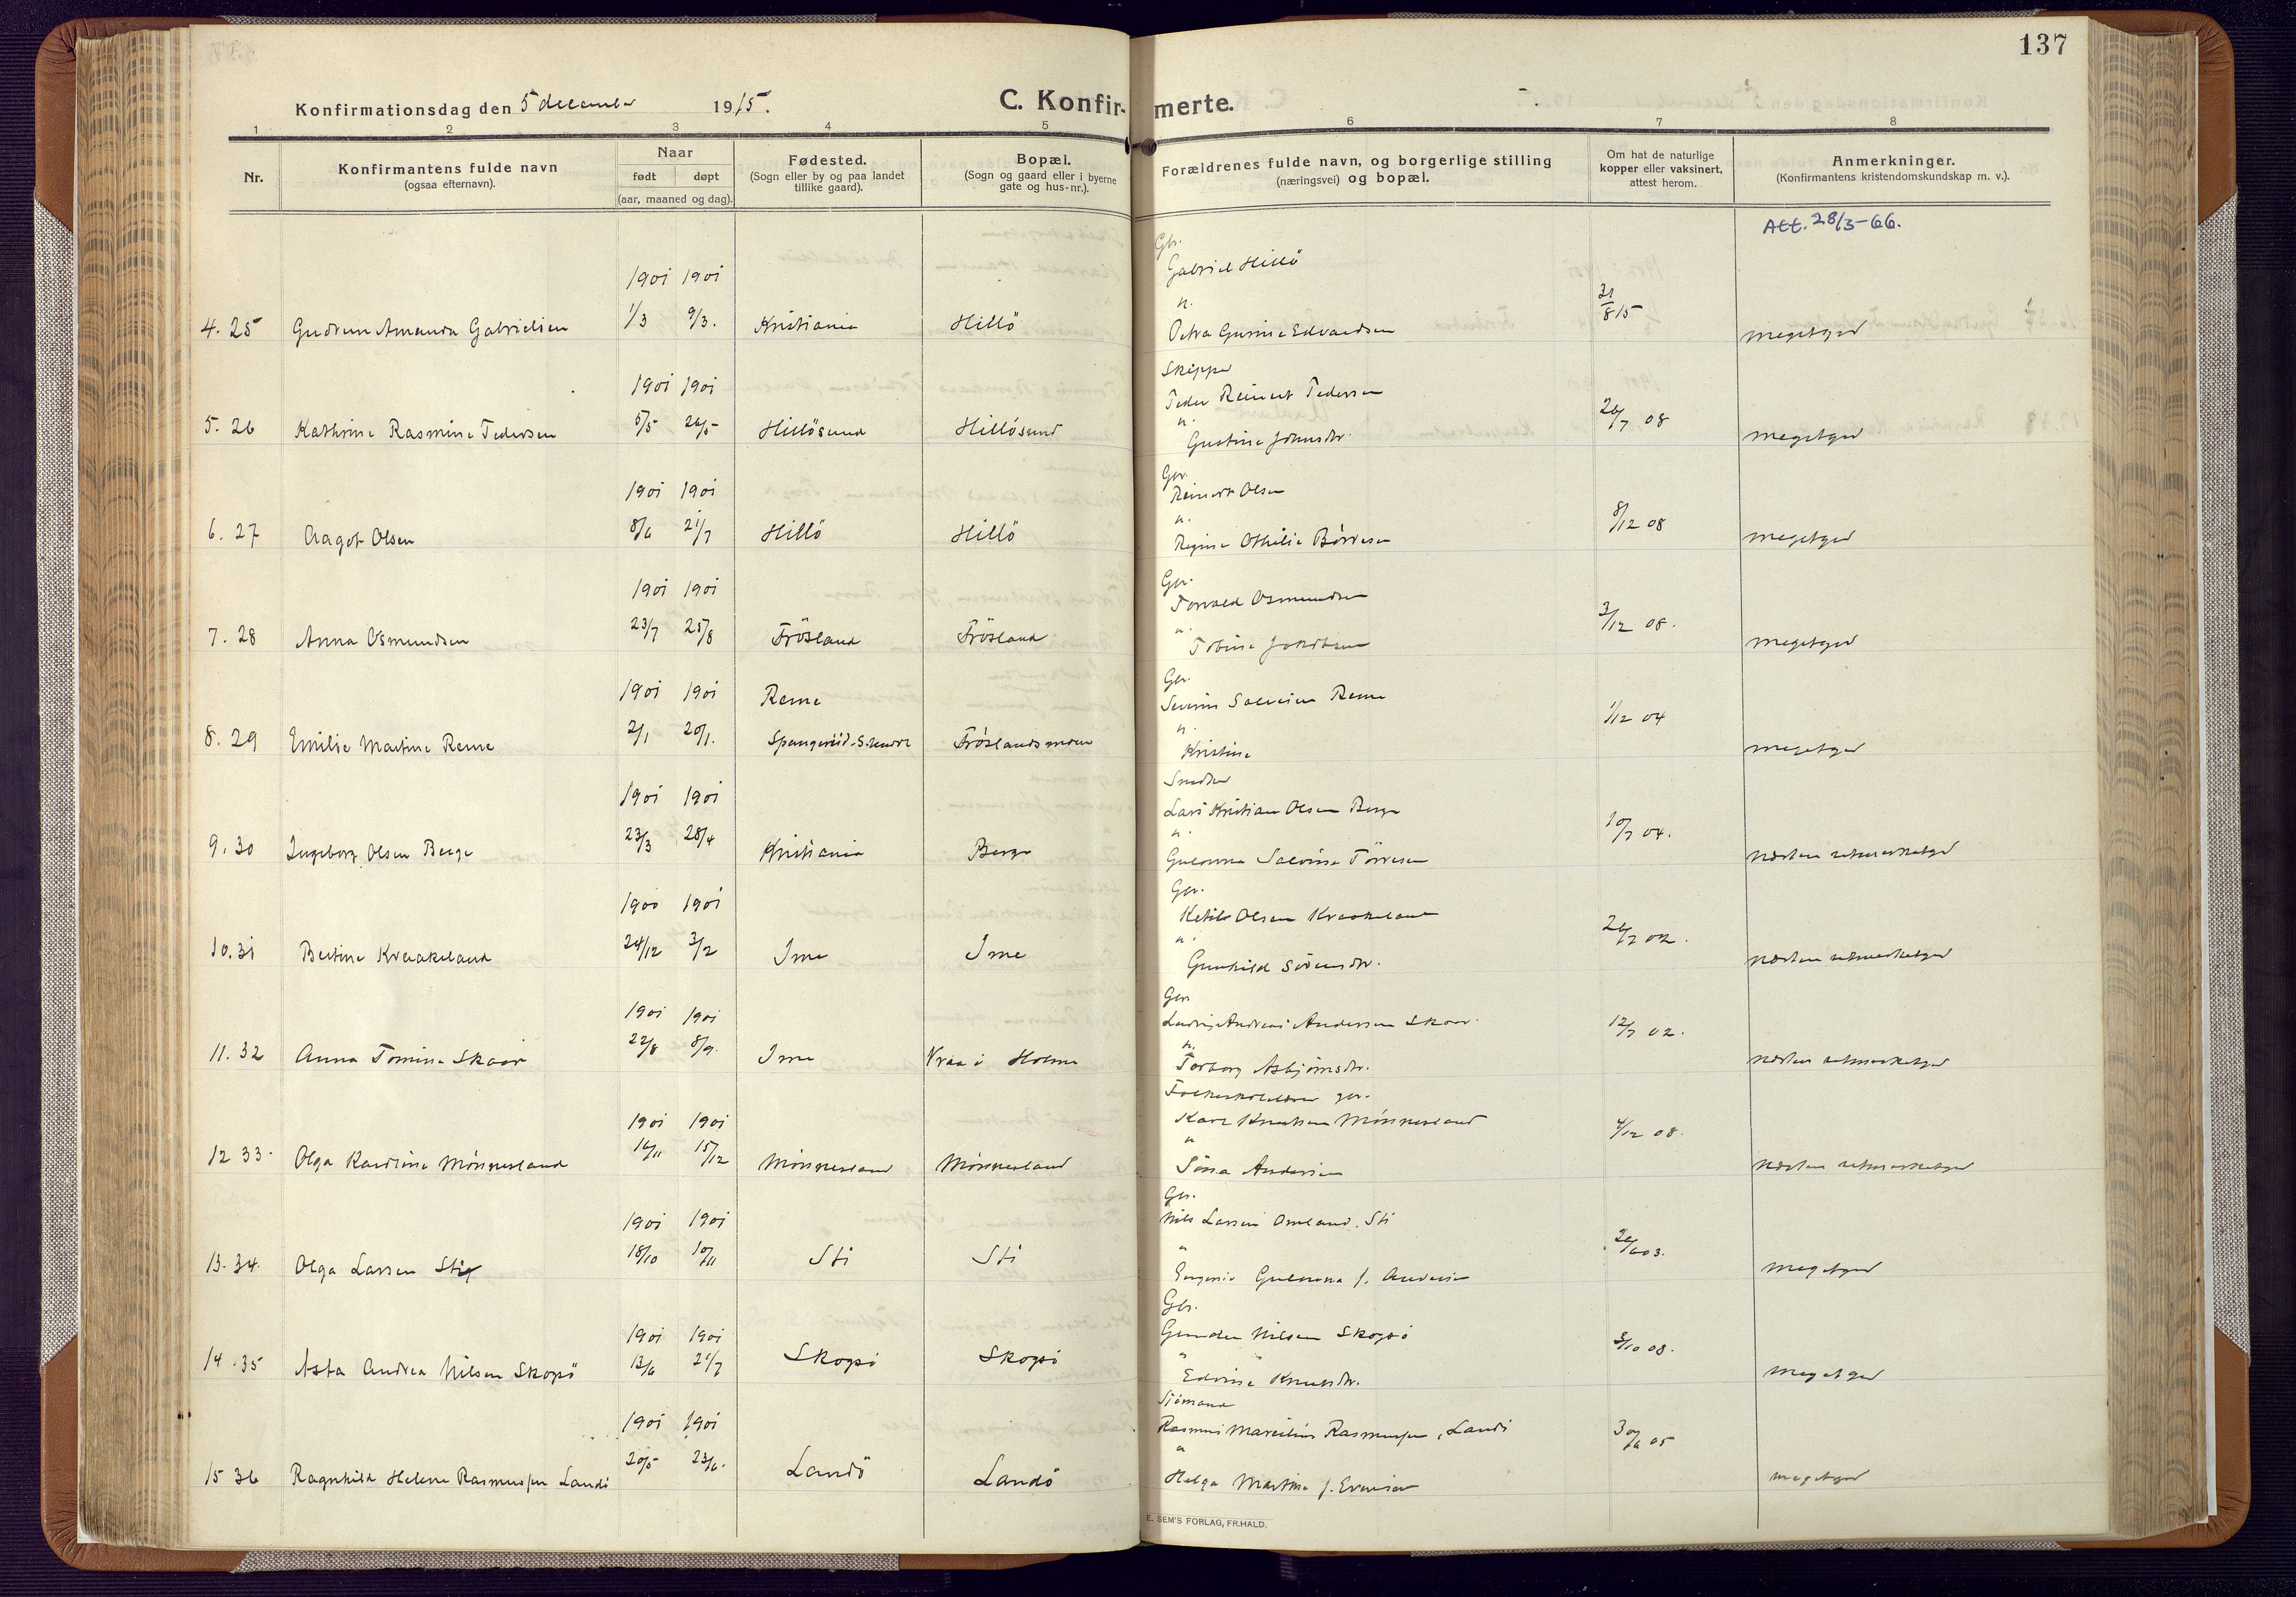 137
Konfirmationsdag den 5 december 1915.
C. Konfirmerte.
1 2 3 4 5 6 7 8
Nr.
Konfirmantens fulde navn
(ogsaa efternavn).
Naar
født døpt
(aar, maaned og dag).
Fødested.
(Sogn eller by og paa landet
tillike gaard).
Bopæl.
(Sogn og gaard eller i byerne
gate og hus-nr.).
Forældrenes fulde navn, og borgerlige stilling
(næringsvei) og bopæl.
Om hat de naturlige
kopper eller vaksinert,
attest herom.
Anmerkninger.
(Konfirmantens kristendomskundskap m. v.).
Att. 28/3-66.
Gbr.
Gabriel Hillö
1901 1901
4. 25 Gudrun Amanda Gabrielsen 1/3 9/3. Kristiania Hillö
31/8 15
Petra Gurine Edvardsen
megetgod
Skipper
1901 1901
Peder Reinert Pedersen
5. 26 Kathrine Rasmine Pedersen 5/5 26/5 Hillösund Hillösund
26/7 08
Gustine Johnsdtr.
megetgod
Gbr.
1901 1901
Reinert Olsen
6. 27 Aagot Olsen 8/6 21/7 Hillö Hillö
8/12 08
Regine Othilie Börresen
megetgod
Gbr.
1901 1901
Torvald Osmundsen
7. 28 Anna Osmundsen 23/7 25/8 Frösland Frösland
3/12 08.
Tobine Jakobsen
megetgod
Gbr.
1901 1901 Reme
Severin Salvesen Reme
8. 29 Emilie Martine Reme 2/1 20/1. Spangereid-S. Undal Fröslandsmoen
1/12 04
Kristine
megetgod
Snedker
1901 1901
Lars Kristian Olsen Berge
9. 30 Ingeborg Olsen Berge 23/3 28/4 Kristiania Berge
10/7 04.
Gulovna Salvine Törresen
næsten utmerketgod
Gbr.
1900 1901
Ketil Olsen Kraakeland
10. 31 Bertine Kraakeland 24/12 3/2 Ime Ime
26/7 02.
Gunhild Sörensdtr.
næsten utmerketgod
Gbr
1901 1901
Ludvig Andreas Andersen Skaar.
11. 32 Anna Tomine Skaar 22/8 8/9. Ime Vraa i Holme
12/7 02.
Torborg Asbjörnsdtr.
næsten utmerketgod
Folkeskolelærer gbr.
1901 1901
Karl Knutsen Mönnesland
12 33. Olga Karoline Mönnesland 16/11 15/12 Mönnesland Mönnesland
4/12 08.
Sina Andersen
næsten utmerketgod
Gbr.
1901 1901
Nils Larsen Omland. Sti
13. 34. Olga Larsen Sti 18/10 10/11 Sti Sti
Eugenie Gulovna f. Andersen
megetgod
Gbr.
1901 1901
Gunder Nilsen Skogsö
14. 35 Asta Andrea Nilsen Skogsö 13/6 21/7 Skogsö Skogsö
3/10 08.
Edvine Knutsdtr.
megetgod
Sjömand
1901 1901
Rasmus Marcelius Rasmussen, Landö
15 36 Ragnhild Helene Rasmussen Landö 20/5 23/6. Landö Landö
30/6 05
Helga Martine f. Evensen
megetgod
E. SEM'S FORLAG, FR.HALD.